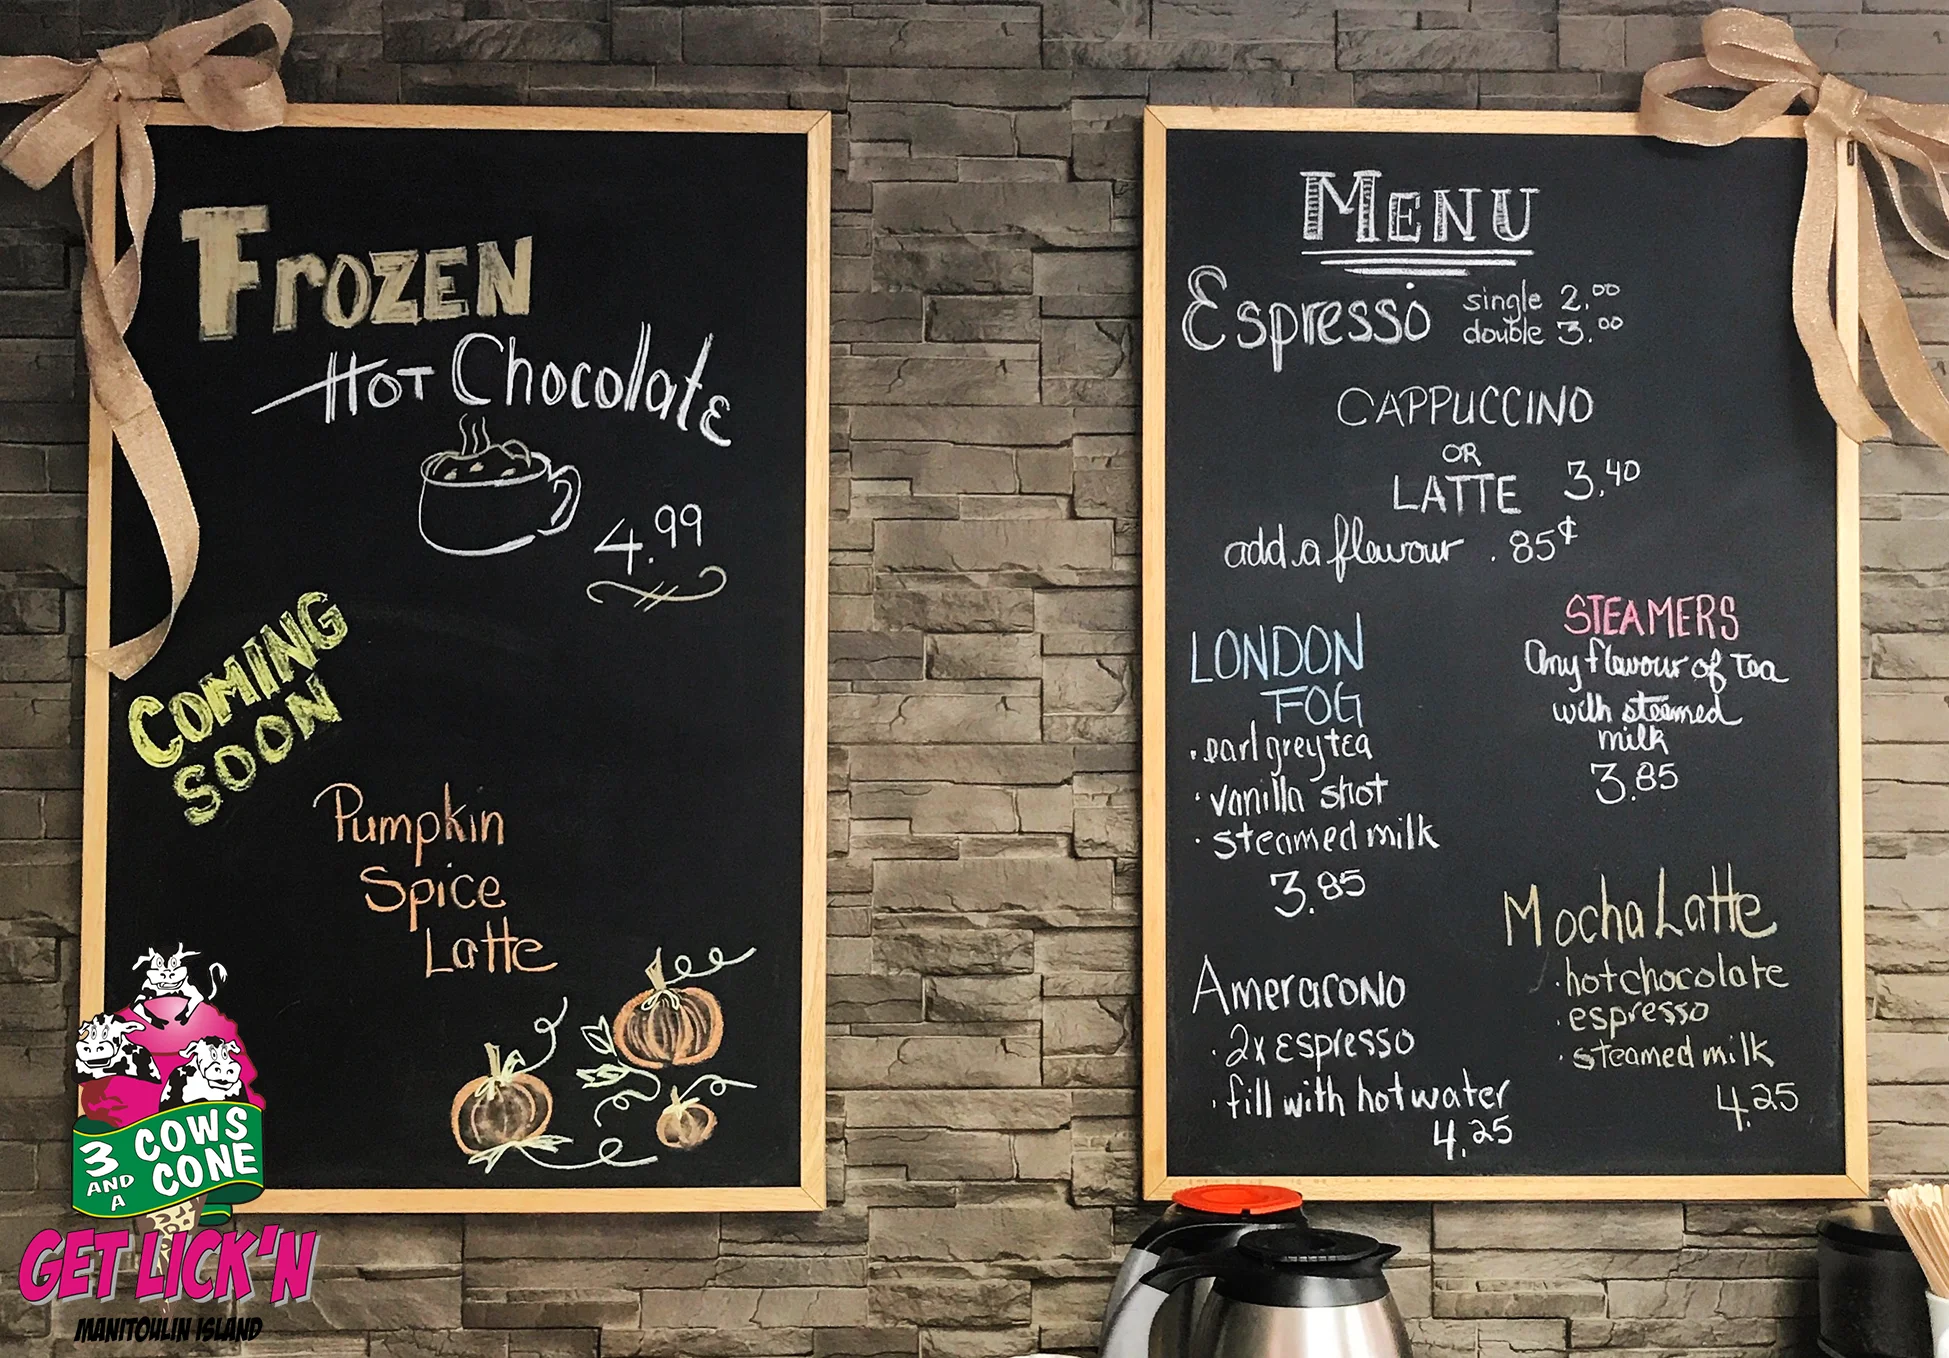 Frozen
Hot Chocolate
4.99
COMING
SOON
Pumpkin
Spice
Latte
3 COWS
AND A CONE
GET LICK'N
MANITOULIN ISLAND
MENU
Espresso single 2.00
double 3.00
CAPPUCCINO
OR
LATTE 3.40
add a flavour .85¢
LONDON
FOG
· earl grey tea
· vanilla shot
· steamed milk
3.85
STEAMERS
Any flavour of Tea
with steamed
milk
3.85
Amerarono
· 2x Espresso
· fill with hot water
4.25
Mocha Latte
· hot chocolate
· espresso
· steamed milk
4.25